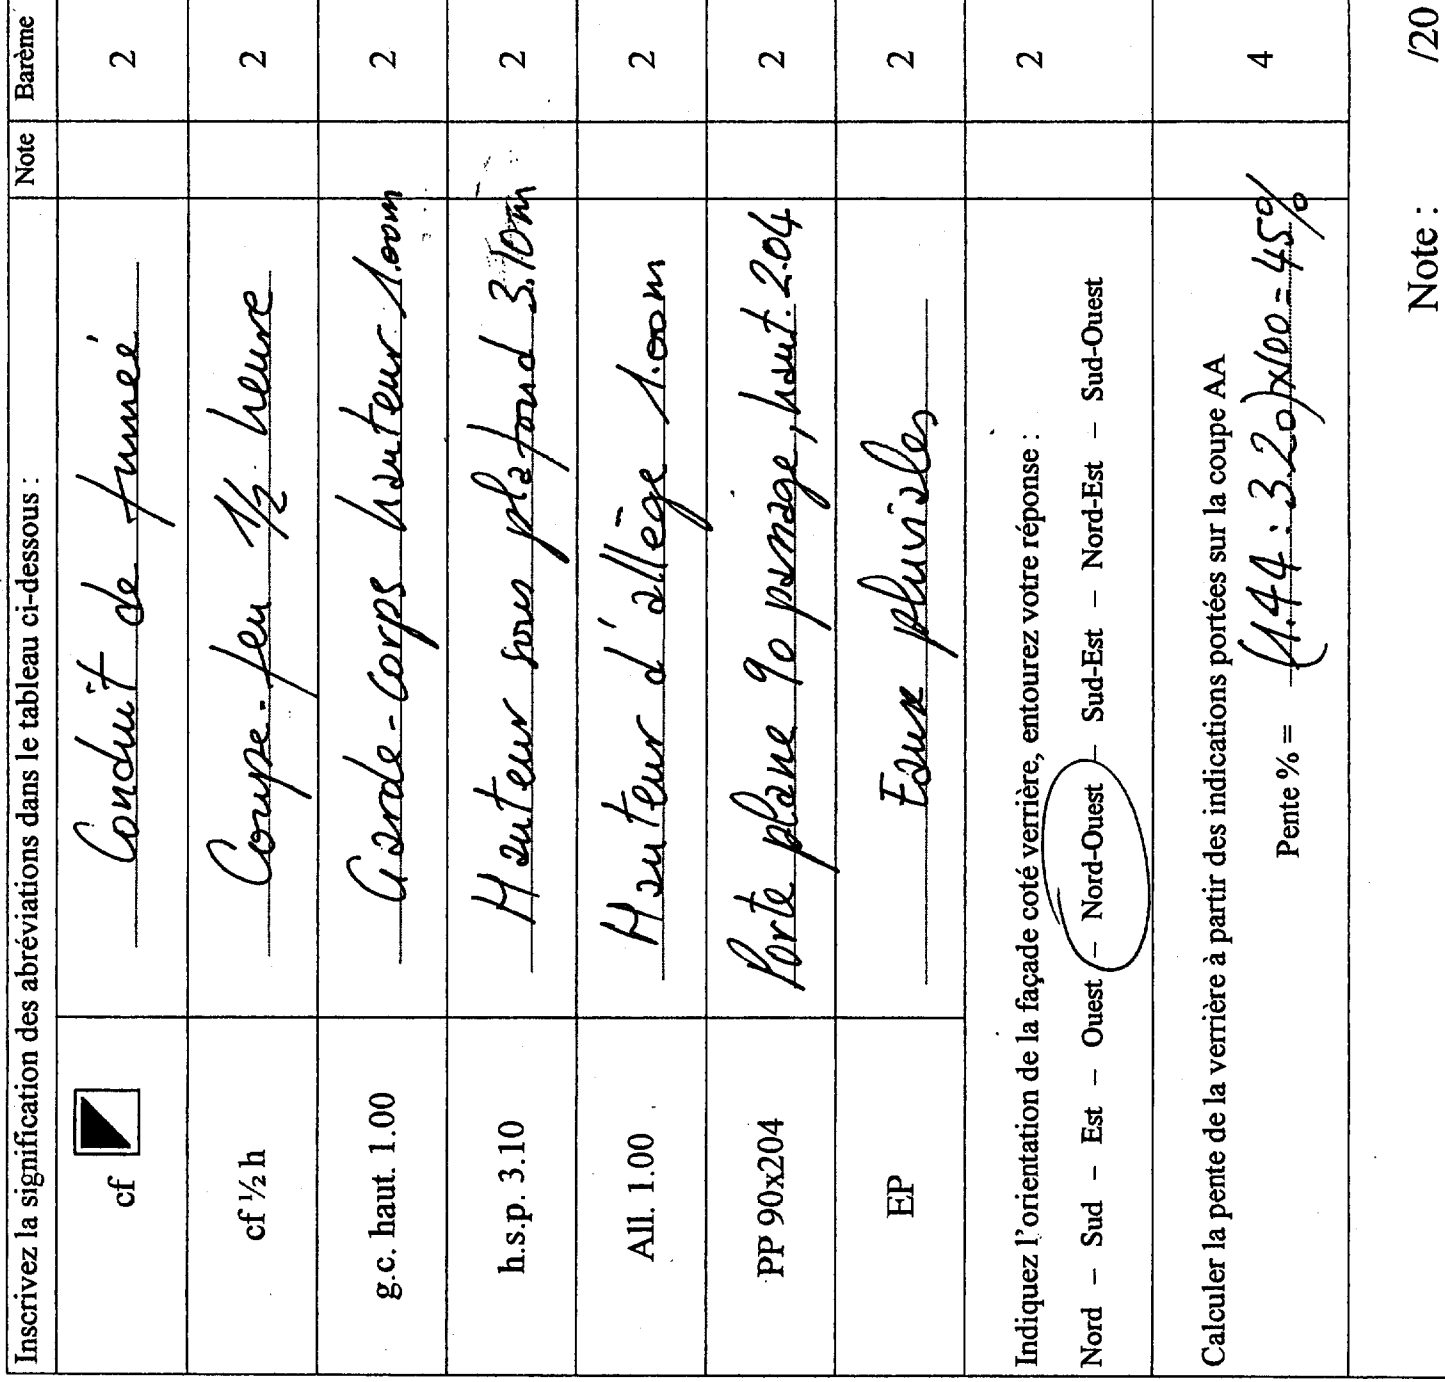 Inscrivez la signification des abréviations dans le tableau ci-dessous : Note Barème
cf Conduit de fumée 2
cf ½ h Coupe-feu 1/2 heure 2
g.c. haut. 1.00 Garde-Corps hauteur 1.00m 2
h.s.p. 3.10 Hauteur sous plafond 3.10m 2
All. 1.00 Hauteur d'allège 1.00m 2
PP 90x204 Porte plane 90 passage, haut. 2.04 2
EP Eaux pluviales 2
Indiquez l'orientation de la façade coté verrière, entourez votre réponse : 2
Nord – Sud – Est – Ouest – Nord-Ouest – Sud-Est – Nord-Est – Sud-Ouest
Calculer la pente de la verrière à partir des indications portées sur la coupe AA 4
Pente % = (1.44 : 3.20)x100 = 45%
Note : /20